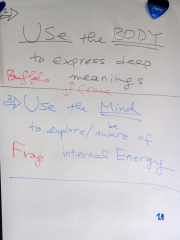 1> USE the BODY
to express deep
Buffalo meanings
Crane
2> Use the Mind
to explore/be aware of
Frag internal Energy